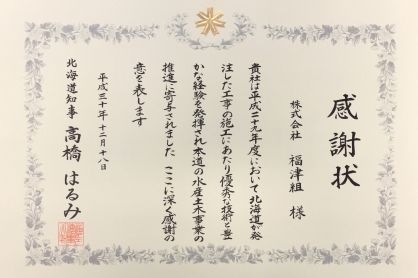 感謝状
株式会社 福津組 様
貴社は平成二十九年度において北海道が発
注した工事の施工にあたり優秀な技術と豊
かな経験を発揮され本道の水産土木事業の
推進に寄与されました ここに深く感謝の
意を表します
平成三十年十二月十八日
北海道知事 高橋はるみ